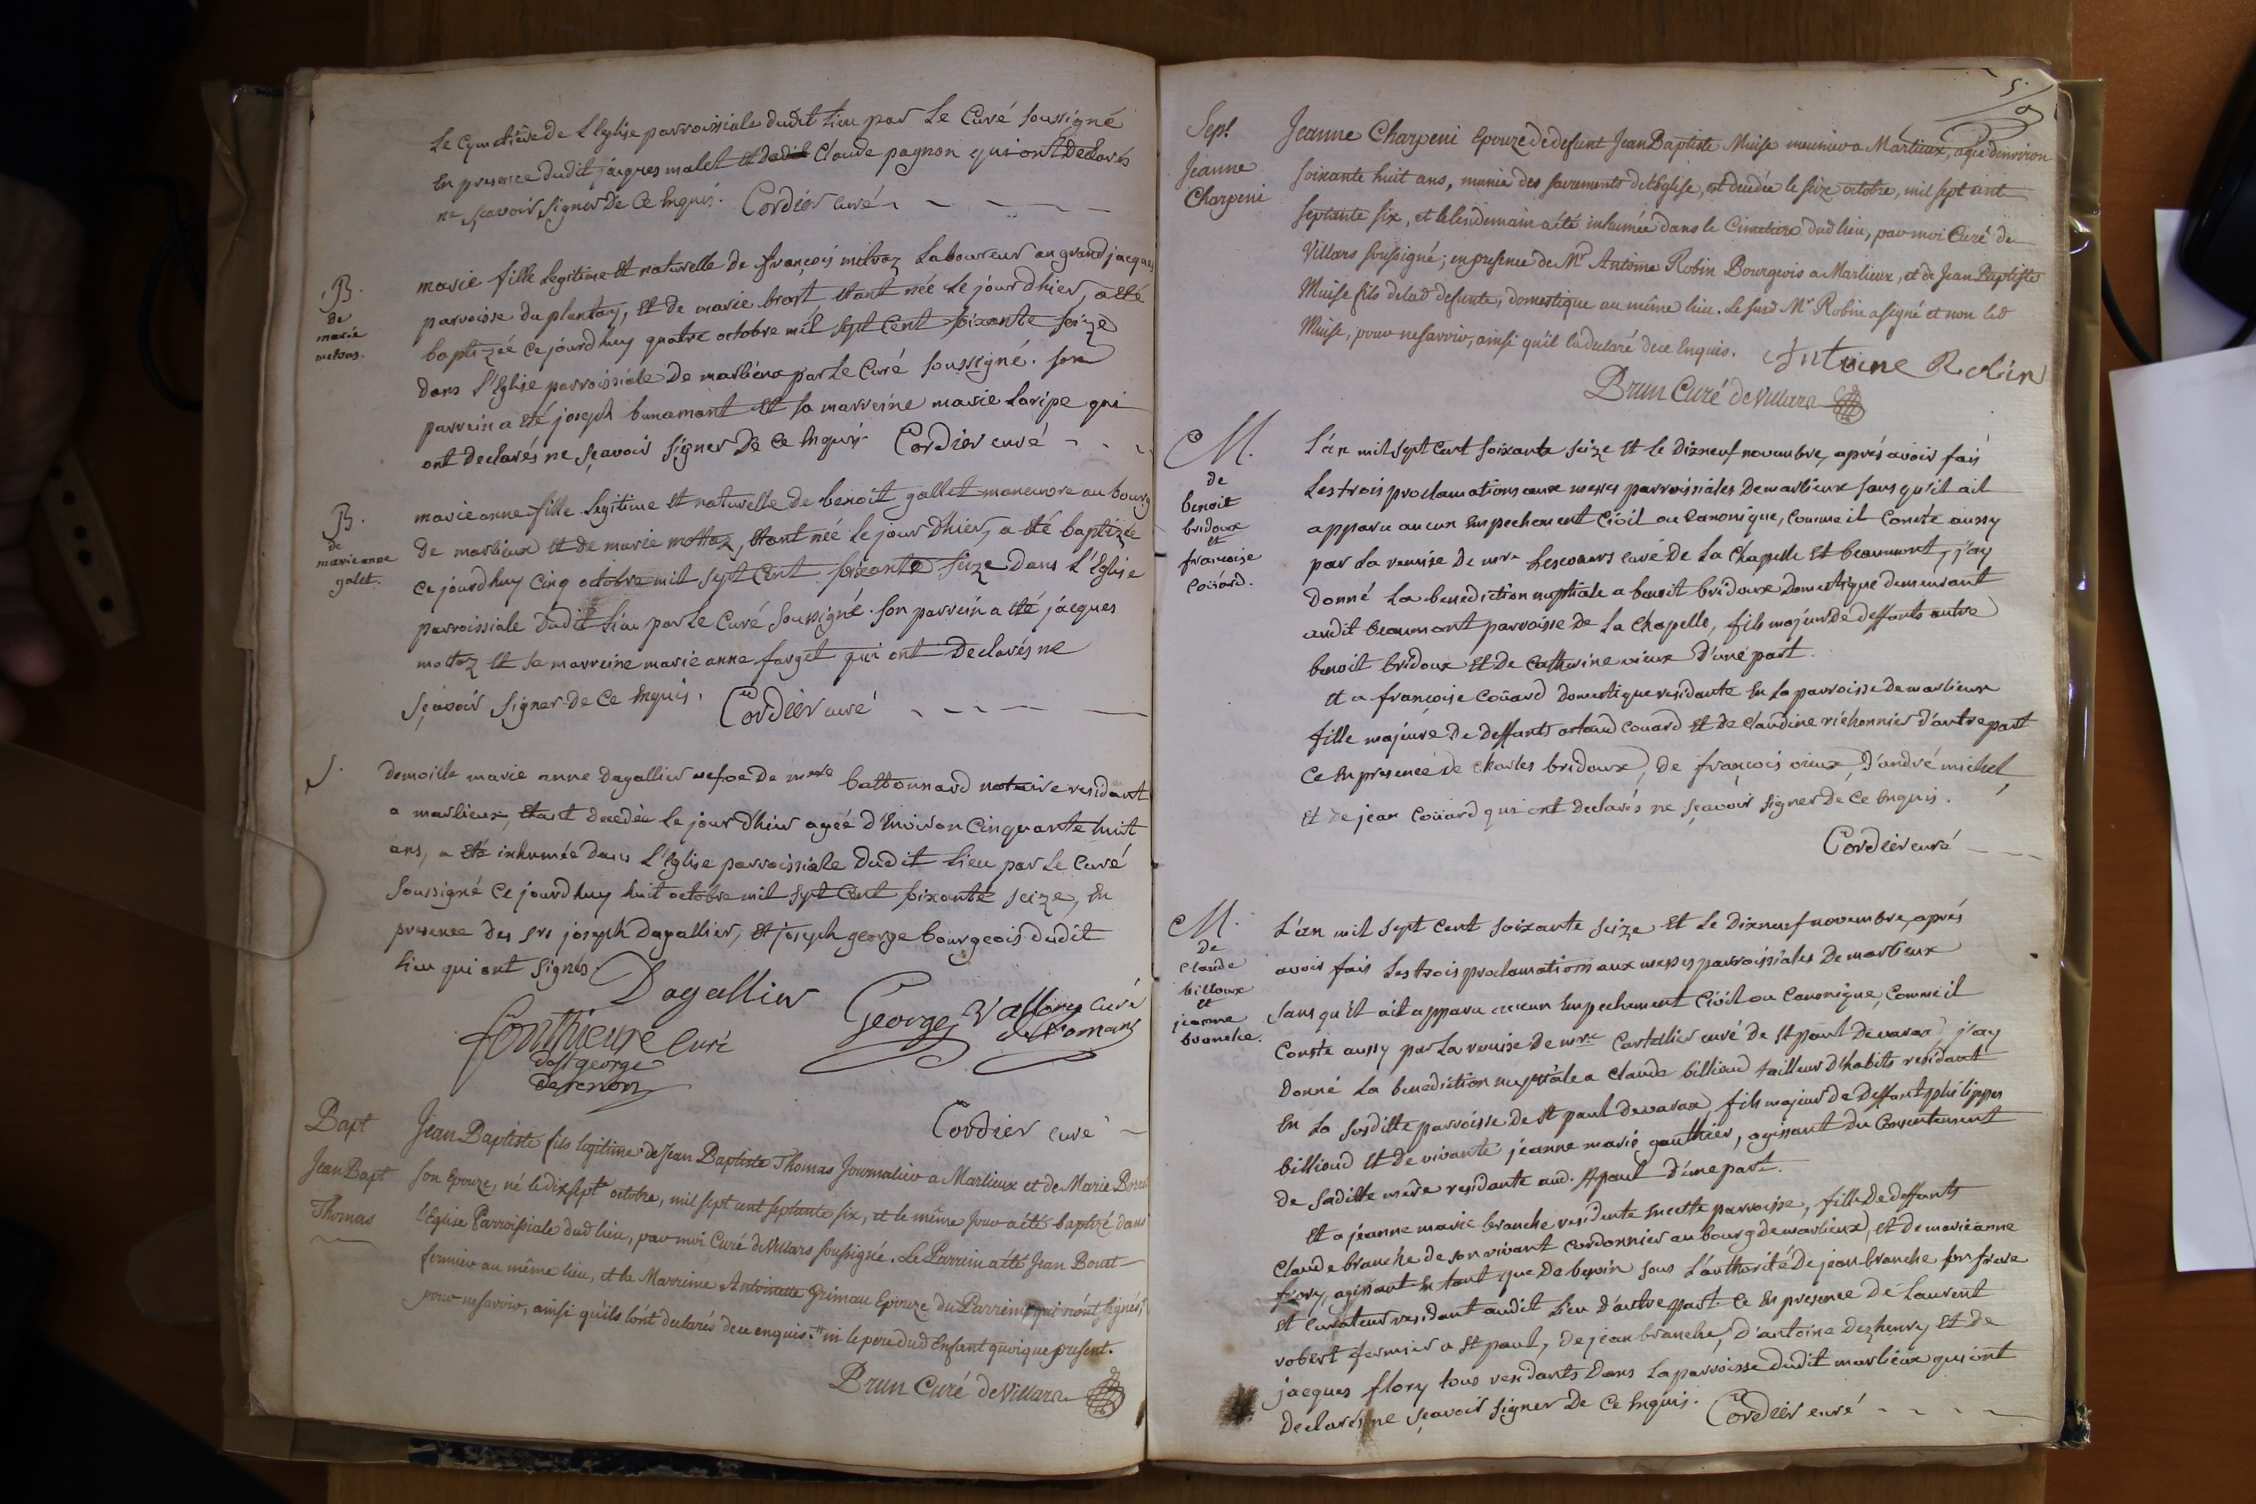 Le Cymetière de L'Eglise parroissiale dudit Lieu par Le Curé soussigné
En presence dudit jacques malet et dudit Claude pagnon qui ont Declarés
ne sçavoir signer De Ce Enquis. Cordier curé
B.
de
marie
marie fille Legitime et naturelle de françois Laboureur au grand jacques
parroisse du plantay, et de marie brost, étant née le jour d'hier, a eté
baptizée ce jourd'huy quatre octobre mil sept cent soixante seize
dans L'Eglise parroissiale De marlieux par Le Curé soussigné. son
parrein a eté joseph bunamant et sa marreine marie Laripe qui
ont declarés ne sçavoir signer De Ce Enquis Cordier curé
B.
de
marieanne
galet.
marieanne fille Legitime et naturelle de benoit gallet manœuvre au bourg
de marlieux et de marie mottaz, étant née Le jour D'hier, a été baptizée
ce jourd'huy Cinq octobre mil sept Cent soixante seize Dans L'Eglise
parroissiale Dudit Lieu par Le Curé Soussigné. Son parrein a été jacques
mottaz et sa marreine marieanne farget qui ont Declarés ne
sçavoir signer De Ce Enquis. Cordier curé
S.
demoiselle marie anne Dagallier de battonnard notaire residant
a marlieux, étant decedée Le jour D'hier ageé d'Environ Cinquante huit
ans, a été inhumée Dans L'Eglise parroissiale Dudit Lieu par Le Curé
Soussigné Ce jourd'huy huit octobre mil sept Cent soixante seize, En
presence des srs joseph Dagallier, et joseph george bourgeois dudit
Lieu qui ont signés.
Dagallier
George Vallons curé
de Romans
Curé
de st george
de renon
Cordier curé
Bapt
Jean Bapt
Thomas
Jean Baptiste fils legitime de Jean Baptiste Thomas Journalier a Marlieux et de Marie
son Epouze, né le dix sept octobre, mil sept cent septante six, et le même jour a été baptizé dans
l'Eglise Parroissiale dud lieu, par moi Curé de Villars soussigné. Le Parrein a été Jean Bouet
fermier au même lieu, et la Marreine Antoinette Grimau Epouze du Parrein, qui n'ont signés,
pour ne savoir, ainsi qu'ils l'ont declarés de ce enquis. ni le pere dud Enfant quoique present.
Brun Curé de Villars
5.
Sept.
Jeanne
Charpeni
Jeanne Charpeni Epouze de defunt Jean Baptiste Muise meunier a Marlieux, agée d'environ
soixante huit ans, munie des sacrements de l'Eglise, est decedée le seize octobre, mil sept cent
septante six, et le lendemain a été inhumée dans le Cimetiere dud lieu, par moi Curé de
Villars soussigné; en presence de Mr Antoine Robin Bourgeois a Marlieux, et de Jean Baptiste
Muise fils de lad defunte, domestique au même lieu. Le susd Mr Robin a signé et non led
Muise, pour ne savoir, ainsi qu'il l'a declaré de ce Enquis. Antoine Robin
Brun Curé de Villars
M.
de
benoit
bridoux
et
françoise
Coüard.
L'an mil sept Cent soixante seize et le dixneuf novembre, aprés avoir fais
Les trois proclamations aux messes parroissiales de marlieux sans qu'il ait
apparu aucun Empechement Civil ou Canonique, Comme il Conste aussy
par La remise de mre curé De La Chapelle et beaumont, j'ay
Donné La benediction nuptiale a benoit bridoux Domestique demeurant
audit beaumont parroisse de La Chapelle, fils majeur de deffunts autre
benoit bridoux et de Catherine vieux D'une part.
et a françoise Coüard domestique residante En La parroisse De marlieux
fille majeure De Deffunts Couard et de Claudine richonnier d'autre part
Ce En presence de Charles bridoux, de françois D'andré michel,
et de jean Coüard qui ont declarés ne sçavoir signer De Ce Enquis.
Cordier curé
M.
de
Claude
billoux
et
jeanne
branche.
L'an mil sept Cent soixante seize et le dixneuf novembre, aprés
avoir fais Les trois proclamations aux messes parroissiales De marlieux
sans qu'il ait apparu aucun Empechement Civil ou Canonique, Comme il
Conste aussy par La remise De mre Cartellier curé de St paul Devarax j'ay
Donné La benediction nuptiale a Claude billioud tailleur D'habits residant
En La susditte parroisse de St paul devarax fils majeur de Deffunt philippes
billioud et de vivante jeanne marie gauthier, agissant du Consentement
de saditte mere residante aud. St paul D'une part.
et a jeanne marie branche residante En cette parroisse, fille De deffunts
Claude branche de son vivant cordonnier au bourg de marlieux, et de marieanne
flory, agissant En tant que De besoin sous L'authorité De jean branche son frere
et Curateur residant audit Lieu d'autre part. Ce En presence de Laurent
robert fermier a St paul, De jean branche, D'antoine dezhenry et de
jacques flory tous residants Dans La parroisse dudit marlieux qui ont
declarés ne sçavoir signer De Ce Enquis. Cordier curé